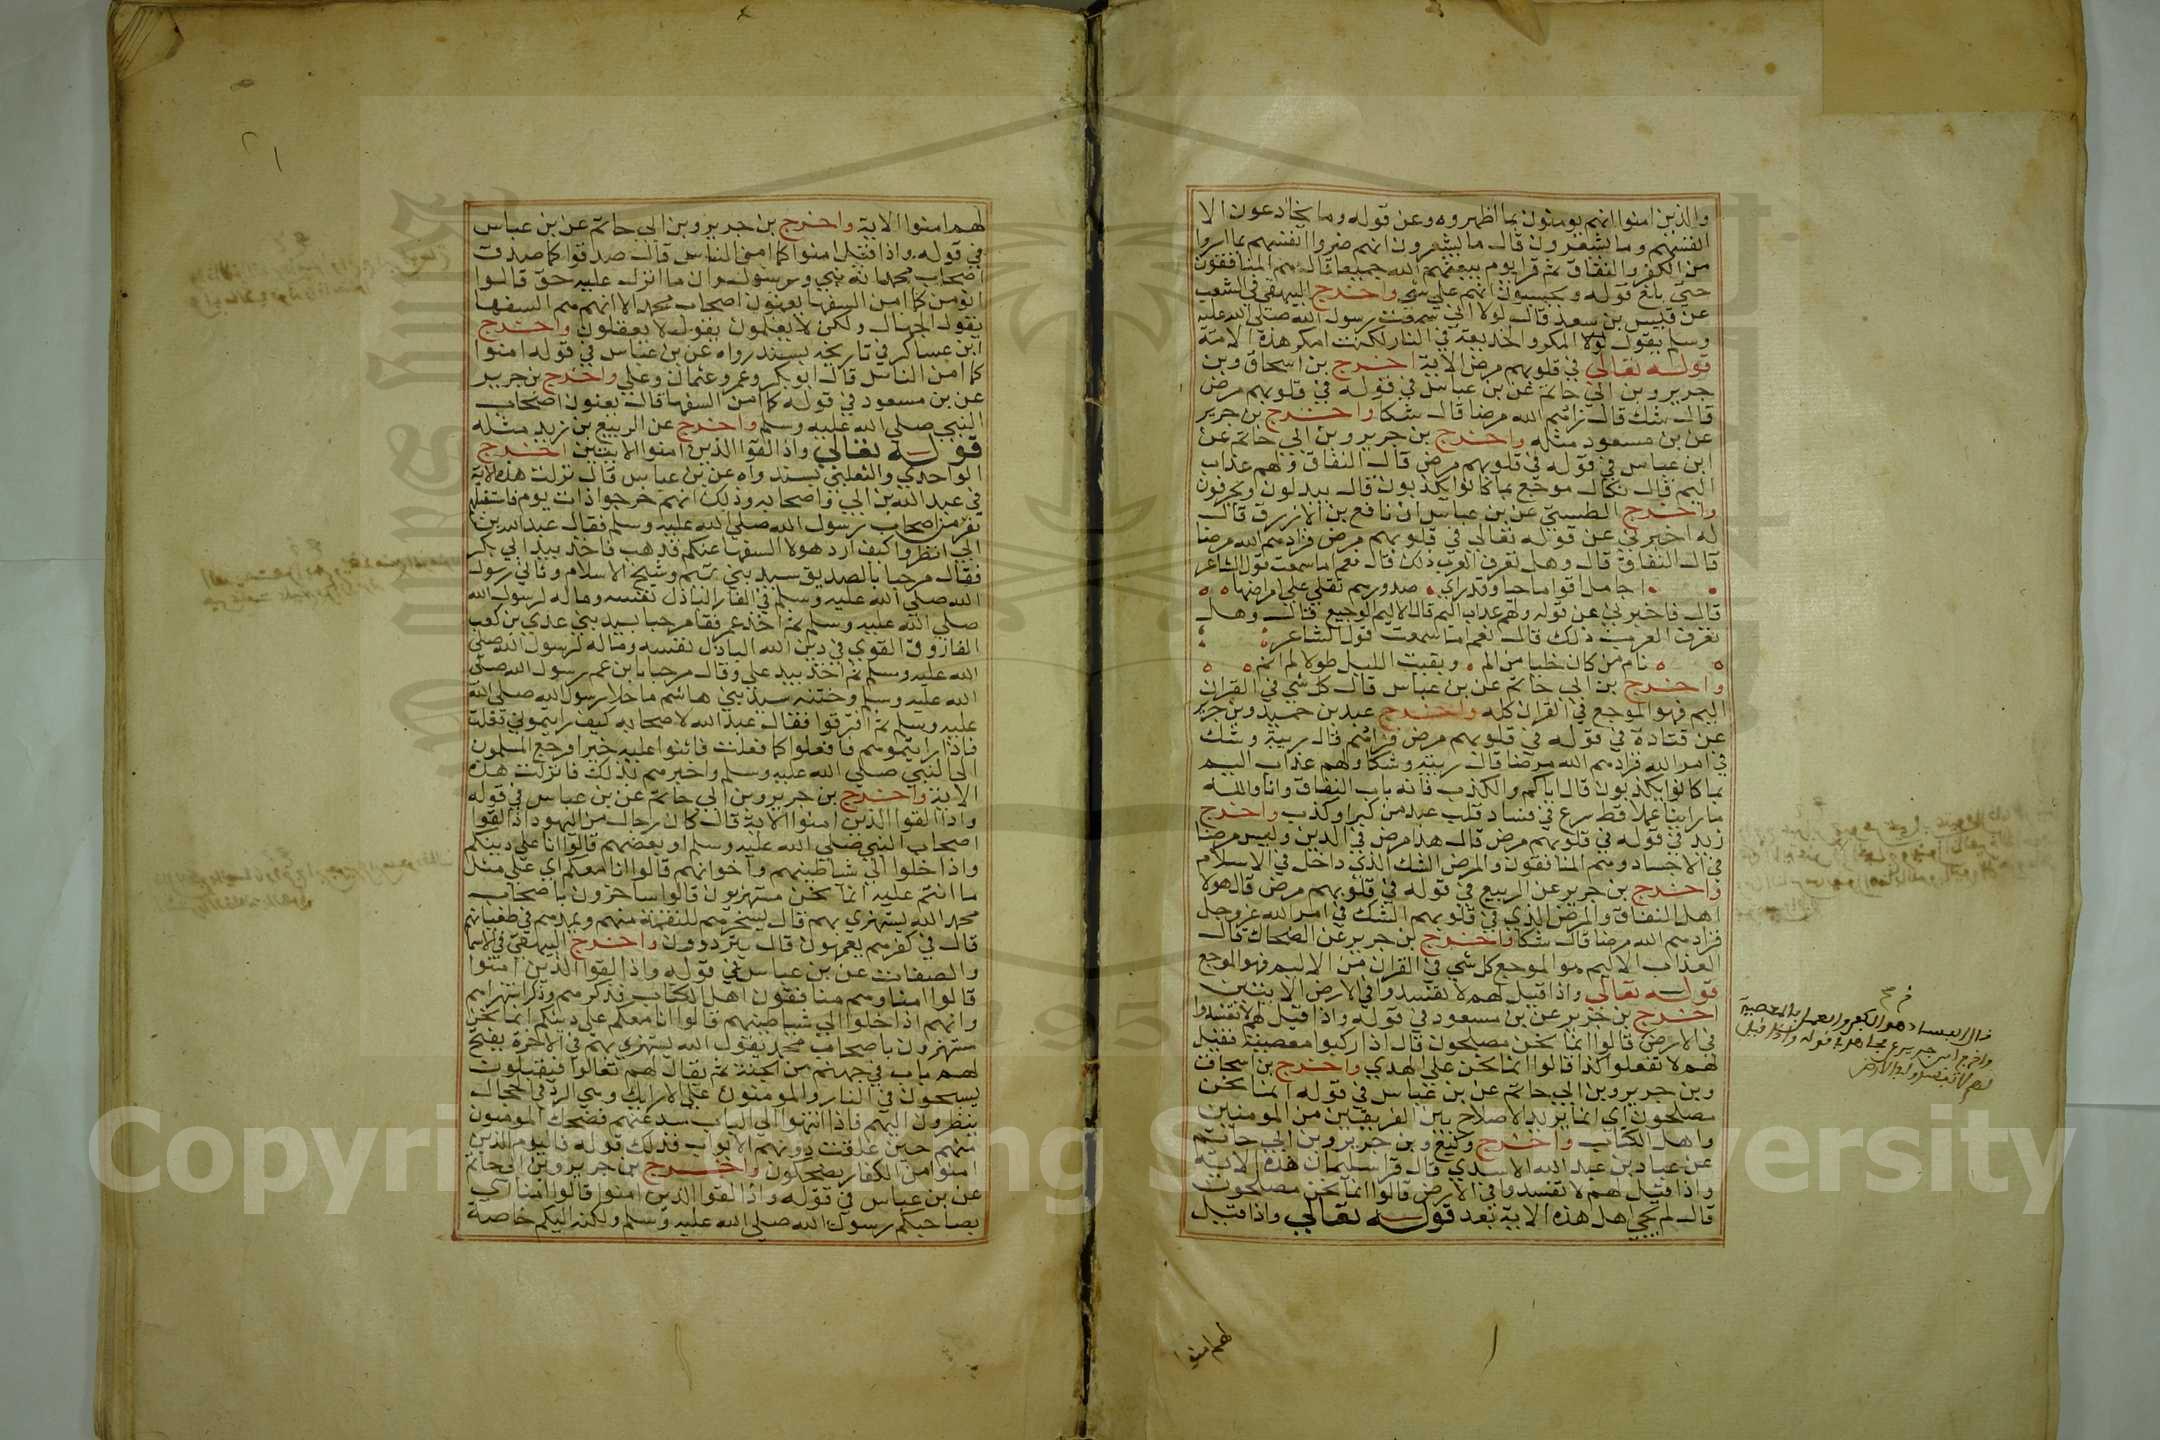 والذين امنوا انهم يومنون بما اظهروه وعن قوله وما يخادعون الا
انفسهم وما يشعرون قال ما يشعرون انهم ضروا انفسهم بما اسروا
من الكفر والنفاق ثم قرا يوم يبعثهم الله جميعا قال هم المنافقون
حتى بلغ قوله ويحسبون انهم على شي واخرج البيهقي في الشعب
عن قيس بن سعد قال لولا اني سمعت رسول الله صلى الله عليه
وسلم يقول لولا المكر والخديعة في النار لكنت امكر هذه الامة
قوله تعالى في قلوبهم مرض الاية اخرج بن اسحاق وبن
جرير وبن ابي حاتم عن بن عباس في قوله في قلوبهم مرض
قال شك قال فزادهم الله مرضا قال شكا واخرج بن جرير
عن بن مسعود مثله واخرج بن جرير وبن ابي حاتم عن
ابن عباس في قوله في قلوبهم مرض قال النفاق ولهم عذاب
اليم قال نكال موجع بما كانوا يكذبون قال يبدلون ويحرفون
واخرج الطستي عن بن عباس ان نافع بن الازرق قال
له اخبرني عن قوله تعالى في قلوبهم مرض فزادهم الله مرضا
قال النفاق قال وهل تعرف العرب ذلك قال نعم اما سمعت قول الشاعر
اجامل اقواما حيا وقد ارى صدورهم تغلي علي مراضها
قال فاخبرني عن قوله ولهم عذاب اليم قال الاليم الوجيع قال وهل
تعرف العرب ذلك قال نعم اما سمعت قول الشاعر
نام من كان خليا من الم وبقيت الليل طولا لم انم
واخرج بن ابي حاتم عن بن عباس قال كل شي في القران
اليم فهو الموجع في القران كله واخرج عبد بن حميد وبن جرير
عن قتادة في قوله في قلوبهم مرض فزادهم قال ريبة وشك
في امر الله فزادهم الله مرضا قال ريبة وشكا ولهم عذاب اليم
بما كانوا يكذبون قال اياكم والكذب فانه باب النفاق وانا والله
ما راينا عملا قط اسرع في فساد قلب عبد من كبر او كذب واخرج
زيد في قوله في قلوبهم مرض قال هذا مرض في الدين وليس مرضا
في الاجساد وهم المنافقون والمرض الشك الذي داخل في الاسلام
واخرج بن جرير عن الربيع في قوله في قلوبهم مرض قال هولا
اهل النفاق والمرض الذي في قلوبهم الشك في امر الله عز وجل
فزادهم الله مرضا قال شكا واخرج بن جرير عن الضحاك قال
العذاب الاليم هو الموجع كل شي في القران من الاليم فهو الموجع
قوله تعالى واذا قيل لهم لا تفسدوا في الارض الايتين
اخرج بن جرير عن بن مسعود في قوله واذا قيل لهم لا تفسدوا
في الارض قالوا انما نحن مصلحون قال اذا ركبوا معصية فقيل
لهم لا تفعلوا كذا قالوا انما نحن على الهدي واخرج بن اسحاق
وبن جرير وبن ابي حاتم عن بن عباس في قوله انما نحن
مصلحون اي انما نريد الاصلاح بين الفريقين من المومنين
واهل الكتاب واخرج وكيع وبن جرير وبن ابي حاتم
عن عباد بن عبد الله الاسدي قال قرا سليمان هذه الاية
واذا قيل لهم لا تفسدوا في الارض قالوا انما نحن مصلحون
قال لم يجي اهل هذه الاية بعد قوله تعالى واذا قيل
قال الفساد هو الكفر والعمل بالمعصية
واخرج ابن جرير عن مجاهد في قوله واذا قيل
لهم لا تفسدوا في الارض
لهم امنوا
لهم امنوا الاية واخرج بن جرير وبن ابي حاتم عن بن عباس
في قوله واذا قيل امنوا كما امن الناس قال صدقوا كما صدق
اصحاب محمد انه نبي ورسول وان ما انزل عليه حق قالوا
انومن كما امن السفها يعنون اصحاب محمد الا انهم هم السفها
يقول الجهال ولكن لا يعلمون يقول لا يعقلون واخرج
ابن عساكر في تاريخه بسند رواه عن بن عباس في قوله امنوا
كما امن الناس قال ابو بكر وعمر وعثمان وعلي واخرج بن جرير
عن بن مسعود في قوله كما امن السفها قال يعنون اصحاب
النبي صلى الله عليه وسلم واخرج عن الربيع بن زيد مثله
قوله تعالى واذا لقوا الذين امنوا الايتين اخرج
الواحدي والثعلبي بسند رواه عن بن عباس قال نزلت هذه الاية
في عبد الله بن ابي واصحابه وذلك انهم خرجوا ذات يوم فاستقبلهم
نفر من اصحاب رسول الله صلى الله عليه وسلم فقال عبد الله بن
ابي انظروا كيف ارد هولا السفها عنكم فذهب فاخذ بيد ابي بكر
فقال مرحبا بالصديق سيد بني تيم وشيخ الاسلام وثاني رسول
الله صلى الله عليه وسلم في الغار الباذل نفسه وماله لرسول الله
صلى الله عليه وسلم ثم اخذ عمر فقال مرحبا بسيد بني عدي بن كعب
الفاروق القوي في دين الله الباذل نفسه وماله لرسول الله صلى
الله عليه وسلم ثم اخذ بيد علي وقال مرحبا بابن عم رسول الله صلى
الله عليه وسلم وختنه سيد بني هاشم ما خلا رسول الله صلى الله
عليه وسلم ثم افترقوا فقال عبد الله لاصحابه كيف رايتموني فعلت
فاذا رايتموهم فافعلوا كما فعلت فاثنوا عليه خيرا ورجع المسلمون
الى النبي صلى الله عليه وسلم واخبرهم بذلك فانزلت هذه
الاية واخرج بن جرير وبن ابي حاتم عن بن عباس في قوله
واذا لقوا الذين امنوا الاية قال كان رجال من اليهود اذا لقوا
اصحاب النبي صلى الله عليه وسلم او بعضهم قالوا انا على دينكم
واذا خلوا الى شياطينهم واخوانهم قالوا انا معكم اي على مثل
ما انتم عليه انما نحن مستهزيون قالوا ساخرون باصحاب
محمد الله يستهزي بهم قال يسخر بهم للنقمة منهم ويمدهم في طغيانهم
قال في كفرهم يعمهون قال يترددون واخرج البيهقي في الاسما
والصفات عن بن عباس في قوله واذا لقوا الذين امنوا
قالوا امنا وهم منافقون اهل الكتاب فذكرهم وذكر استهزاهم
وانهم اذا خلوا الى شياطينهم قالوا انا معكم على دينكم انما نحن
مستهزون باصحاب محمد يقول الله يستهزي بهم في الاخرة يفتح
لهم باب في جهنم من الجنة ثم يقال لهم تعالوا فيقبلون
يسحون في النار والمومنون على الارايك وهي السرر في الحجال
ينظرون اليهم فاذا انتهوا الى الباب سد عنهم فضحك المومنون
منهم حين غلقت دونهم الابواب فذلك قوله فاليوم الذين
امنوا من الكفار يضحكون واخرج بن جرير وبن ابي حاتم
عن بن عباس في قوله واذا لقوا الذين امنوا قالوا امنا اي
بصاحبكم رسول الله صلى الله عليه وسلم ولكنه اليكم خاصة